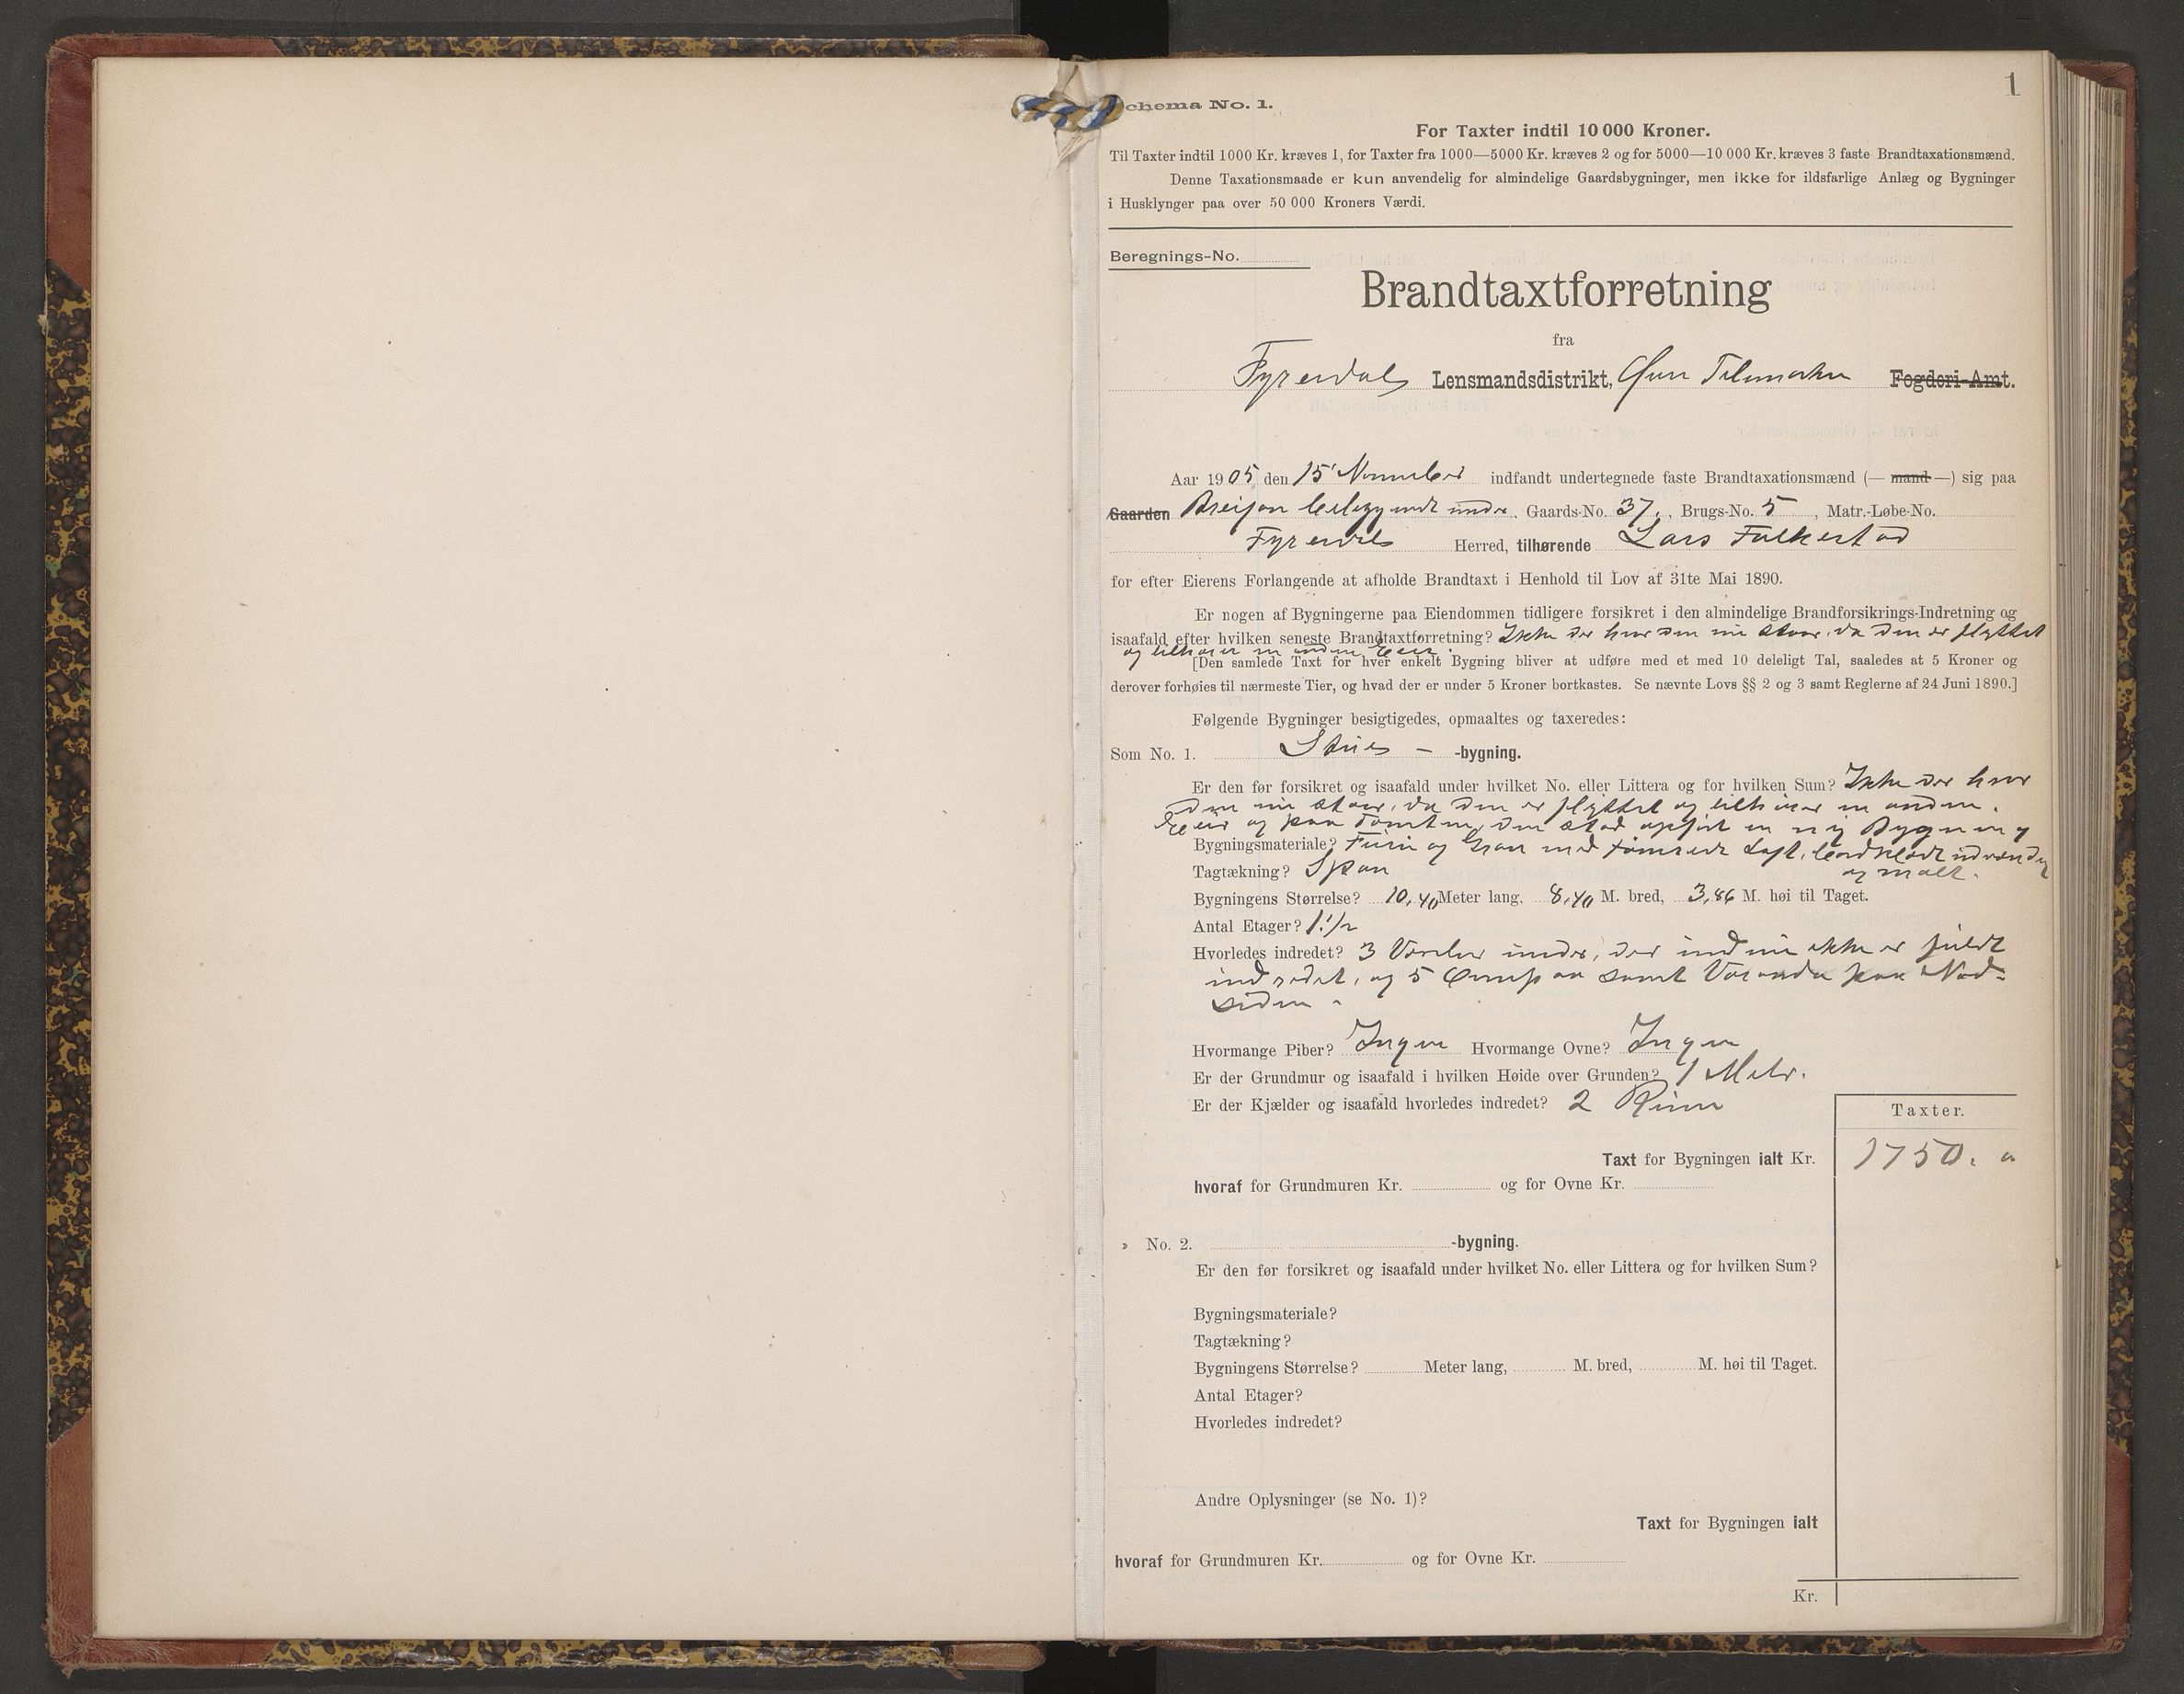 1
chema No. 1.
For Taxter indtil 10 000 Kroner.
Til Taxter indtil 1000 Kr. kræves 1, for Taxter fra 1000—5000 Kr. kræves 2 og for 5000—10 000 Kr. kræves 3 faste Brandtaxationsmænd.
Denne Taxationsmaade er kun anvendelig for almindelige Gaardsbygninger, men ikke for ildsfarlige Anlæg og Bygninger
i Husklynger paa over 50 000 Kroners Værdi.
Beregnings-No.
Brandtaxtforretning
fra
Fyresdals Lensmandsdistrikt, Øvre Telemarken Fogderi-Amt.
Aar 1905 den 15 November indfandt undertegnede faste Brandtaxationsmænd (— mand —) sig paa
Gaarden Gaards-No. 37, Brugs-No. 5, Matr.-Løbe-No.
Fyresdals Herred, tilhørende Lars Folkestad
for efter Eierens Forlangende at afholde Brandtaxt i Henhold til Lov af 31te Mai 1890.
Er nogen af Bygningerne paa Eiendommen tidligere forsikret i den almindelige Brandforsikrings-Indretning og
isaafald efter hvilken seneste Brandtaxtforretning? Ikke der hvor den nu staar, da den er flyttet
og tilhører en anden Eier.
[Den samlede Taxt for hver enkelt Bygning bliver at udføre med et med 10 deleligt Tal, saaledes at 5 Kroner og
derover forhøies til nærmeste Tier, og hvad der er under 5 Kroner bortkastes. Se nævnte Lovs §§ 2 og 3 samt Reglerne af 24 Juni 1890.]
Følgende Bygninger besigtigedes, opmaaltes og taxeredes:
Som No. 1. Stues - -bygning.
Er den før forsikret og isaafald under hvilket No. eller Littera og for hvilken Sum? Ikke der hvor
den nu staar, da den er flyttet og tilhører en anden
Eier og paa Tomten den stod opført en ny Bygning
Bygningsmateriale? Furu og Gran med tømrede Loft, bordklædt udvendig
Tagtækning? Spon og malt.
Bygningens Størrelse? 10,40 Meter lang, 8,40 M. bred, 3,86 M. høi til Taget.
Antal Etager? 1 1/2
Hvorledes indredet? 3 Værelser under, der endnu ikke er fuldt
indredet, og 5 ovenpaa samt Veranda paa Nord-
siden.
Hvormange Piber? Ingen Hvormange Ovne? Ingen
Er der Grundmur og isaafald i hvilken Høide over Grunden? 1 Meter.
Er der Kjælder og isaafald hvorledes indredet? 2 Rum
Taxter.
Taxt for Bygningen ialt Kr. 1750.
hvoraf for Grundmuren Kr. og for Ovne Kr.
» No. 2. -bygning.
Er den før forsikret og isaafald under hvilket No. eller Littera og for hvilken Sum?
Bygningsmateriale?
Tagtækning?
Bygningens Størrelse? Meter lang, M. bred, M. høi til Taget.
Antal Etager?
Hvorledes indredet?
Andre Oplysninger (se No. 1)?
Taxt for Bygningen ialt
hvoraf for Grundmuren Kr. og for Ovne Kr.
Kr.